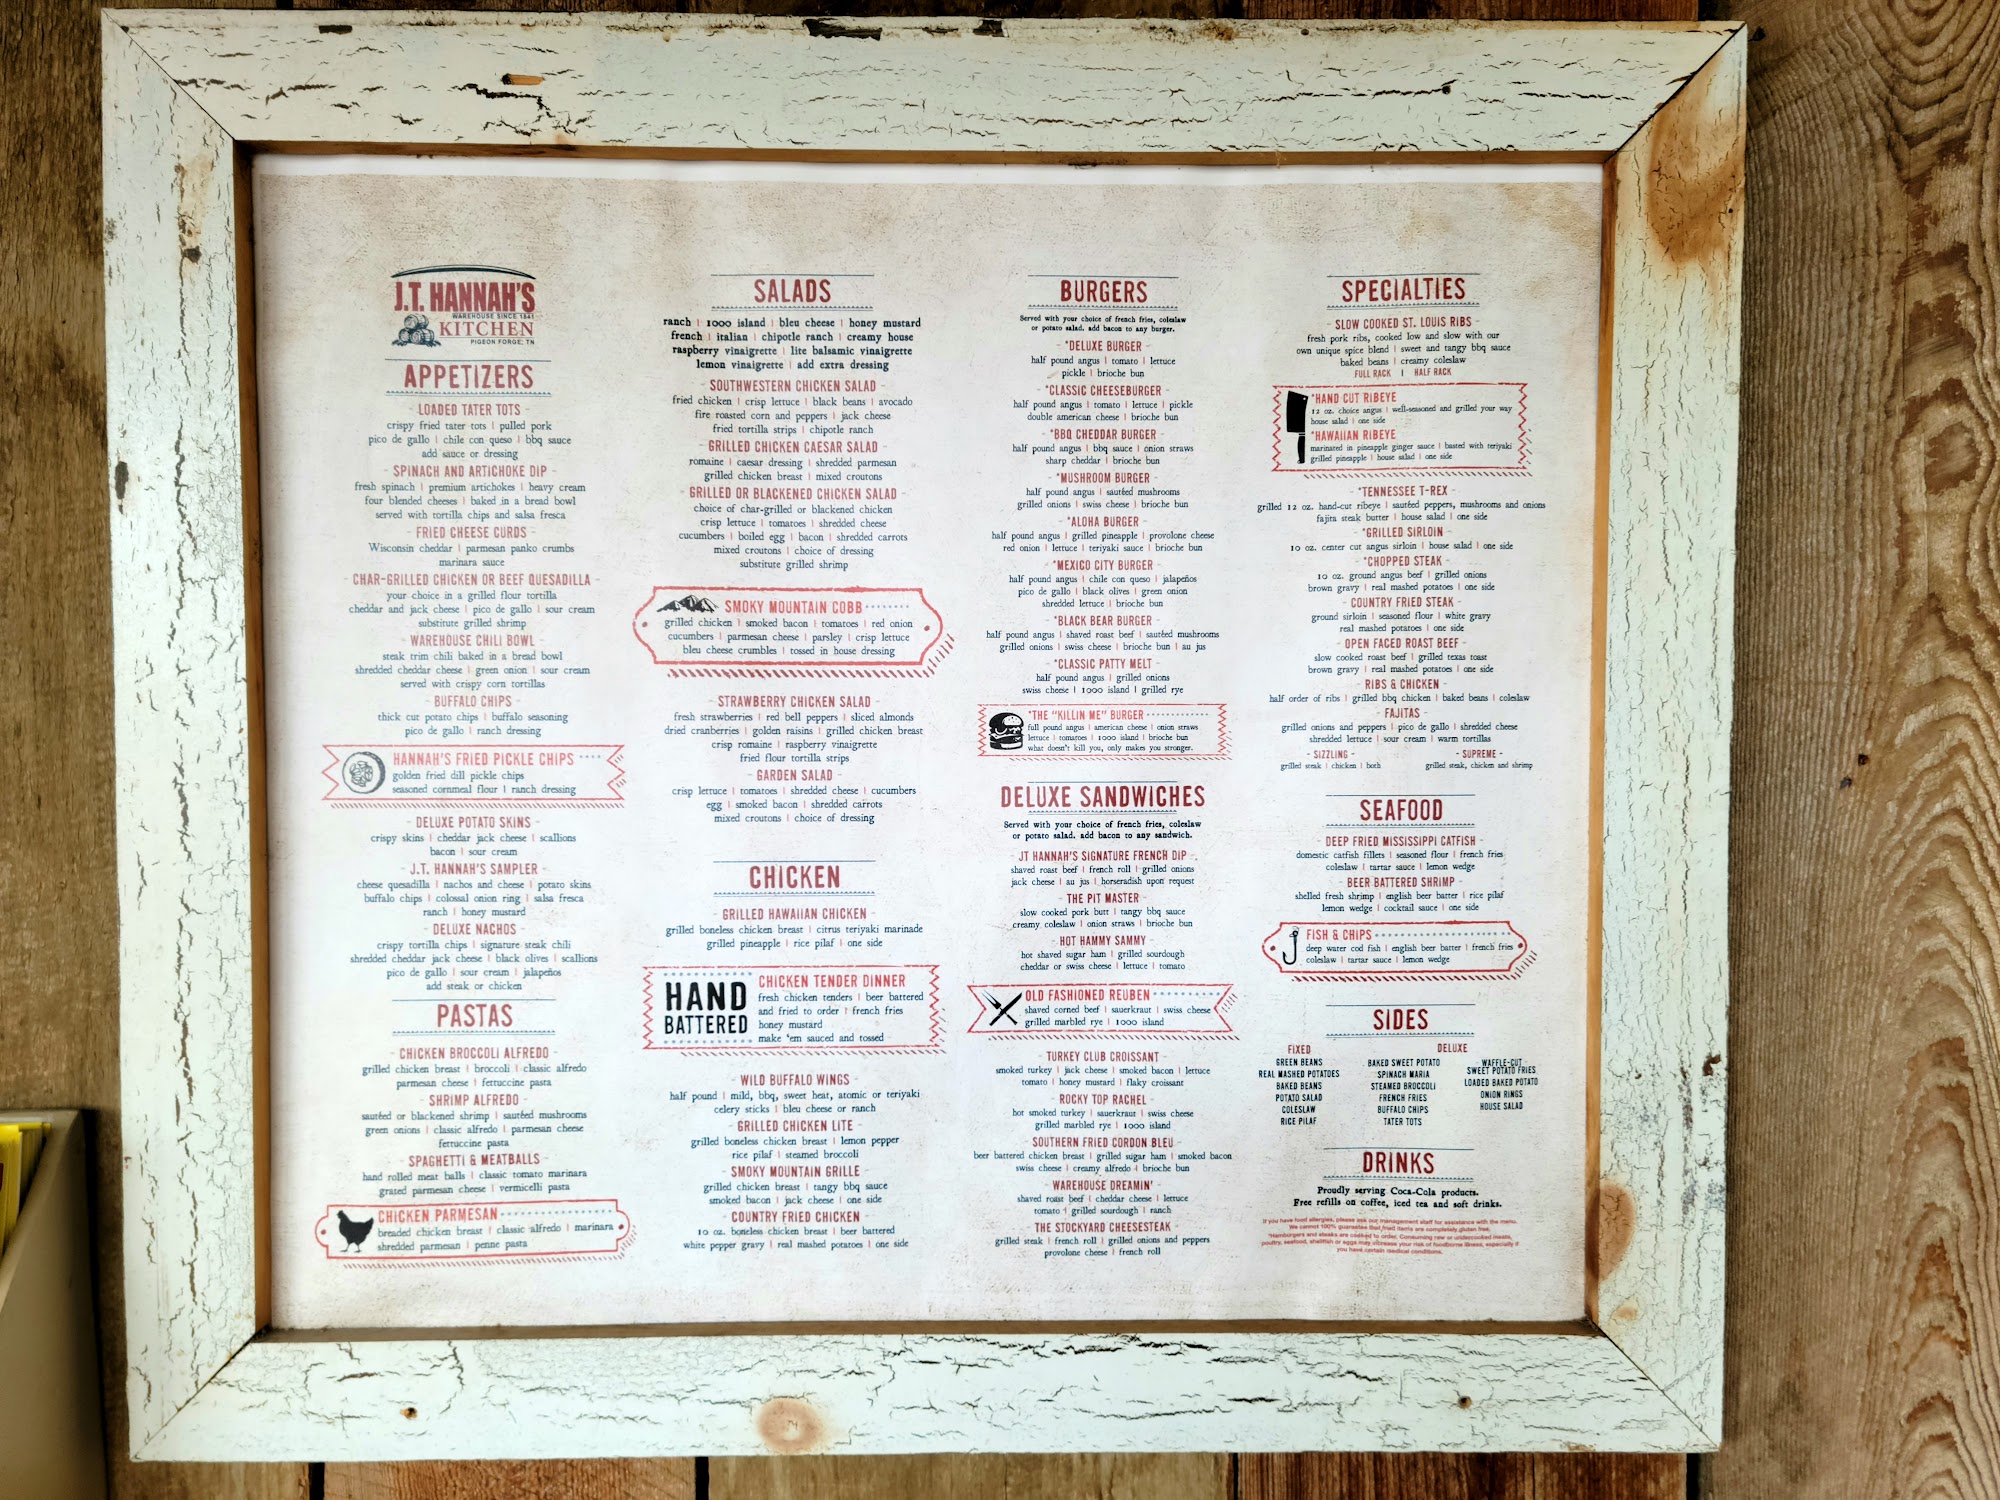 J.T. HANNAH'S
WAREHOUSE SINCE 1841
KITCHEN
PIGEON FORGE, TN
APPETIZERS
- LOADED TATER TOTS -
crispy fried tater tots | pulled pork
pico de gallo | chile con queso | bbq sauce
add sauce or dressing
- SPINACH AND ARTICHOKE DIP -
fresh spinach | premium artichokes | heavy cream
four blended cheeses | baked in a bread bowl
served with tortilla chips and salsa fresca
- FRIED CHEESE CURDS -
Wisconsin cheddar | parmesan panko crumbs
marinara sauce
- CHAR-GRILLED CHICKEN OR BEEF QUESADILLA -
your choice in a grilled flour tortilla
cheddar and jack cheese | pico de gallo | sour cream
substitute grilled shrimp
- WAREHOUSE CHILI BOWL -
steak trim chili baked in a bread bowl
shredded cheddar cheese | green onion | sour cream
served with crispy corn tortillas
- BUFFALO CHIPS -
thick cut potato chips | buffalo seasoning
pico de gallo | ranch dressing
HANNAH'S FRIED PICKLE CHIPS
golden fried dill pickle chips
seasoned cornmeal flour | ranch dressing
- DELUXE POTATO SKINS -
crispy skins | cheddar jack cheese | scallions
bacon | sour cream
- J.T. HANNAH'S SAMPLER -
cheese quesadilla | nachos and cheese | potato skins
buffalo chips | colossal onion ring | salsa fresca
ranch | honey mustard
- DELUXE NACHOS -
crispy tortilla chips | signature steak chili
shredded cheddar jack cheese | black olives | scallions
pico de gallo | sour cream | jalapeños
add steak or chicken
PASTAS
- CHICKEN BROCCOLI ALFREDO -
grilled chicken breast | broccoli | classic alfredo
parmesan cheese | fettuccine pasta
- SHRIMP ALFREDO -
sautéed or blackened shrimp | sautéed mushrooms
green onions | classic alfredo | parmesan cheese
fettuccine pasta
- SPAGHETTI & MEATBALLS -
hand rolled meat balls | classic tomato marinara
grated parmesan cheese | vermicelli pasta
CHICKEN PARMESAN
breaded chicken breast | classic alfredo | marinara
shredded parmesan | penne pasta
SALADS
ranch | 1000 island | bleu cheese | honey mustard
french | italian | chipotle ranch | creamy house
raspberry vinaigrette | lite balsamic vinaigrette
lemon vinaigrette | add extra dressing
- SOUTHWESTERN CHICKEN SALAD -
fried chicken | crisp lettuce | black beans | avocado
fire roasted corn and peppers | jack cheese
fried tortilla strips | chipotle ranch
- GRILLED CHICKEN CAESAR SALAD -
romaine | caesar dressing | shredded parmesan
grilled chicken breast | mixed croutons
- GRILLED OR BLACKENED CHICKEN SALAD -
choice of char-grilled or blackened chicken
crisp lettuce | tomatoes | shredded cheese
cucumbers | boiled egg | bacon | shredded carrots
mixed croutons | choice of dressing
substitute grilled shrimp
SMOKY MOUNTAIN COBB
grilled chicken | smoked bacon | tomatoes | red onion
cucumbers | parmesan cheese | parsley | crisp lettuce
bleu cheese crumbles | tossed in house dressing
- STRAWBERRY CHICKEN SALAD -
fresh strawberries | red bell peppers | sliced almonds
dried cranberries | golden raisins | grilled chicken breast
crisp romaine | raspberry vinaigrette
fried flour tortilla strips
- GARDEN SALAD -
crisp lettuce | tomatoes | shredded cheese | cucumbers
egg | smoked bacon | shredded carrots
mixed croutons | choice of dressing
CHICKEN
- GRILLED HAWAIIAN CHICKEN -
grilled boneless chicken breast | citrus teriyaki marinade
grilled pineapple | rice pilaf | one side
HAND
BATTERED
CHICKEN TENDER DINNER
fresh chicken tenders | beer battered
and fried to order | french fries
honey mustard
make 'em sauced and tossed
- WILD BUFFALO WINGS -
half pound | mild, bbq, sweet heat, atomic or teriyaki
celery sticks | bleu cheese or ranch
- GRILLED CHICKEN LITE -
grilled boneless chicken breast | lemon pepper
rice pilaf | steamed broccoli
- SMOKY MOUNTAIN GRILLE -
grilled chicken breast | tangy bbq sauce
smoked bacon | jack cheese | one side
- COUNTRY FRIED CHICKEN -
10 oz. boneless chicken breast | beer battered
white pepper gravy | real mashed potatoes | one side
BURGERS
Served with your choice of french fries, coleslaw
or potato salad. add bacon to any burger.
- *DELUXE BURGER -
half pound angus | tomato | lettuce
pickle | brioche bun
- *CLASSIC CHEESEBURGER -
half pound angus | tomato | lettuce | pickle
double american cheese | brioche bun
- *BBQ CHEDDAR BURGER -
half pound angus | bbq sauce | onion straws
sharp cheddar | brioche bun
- *MUSHROOM BURGER -
half pound angus | sautéed mushrooms
grilled onions | swiss cheese | brioche bun
- *ALOHA BURGER -
half pound angus | grilled pineapple | provolone cheese
red onion | lettuce | teriyaki sauce | brioche bun
- *MEXICO CITY BURGER -
half pound angus | chile con queso | jalapeños
pico de gallo | black olives | green onion
shredded lettuce | brioche bun
- *BLACK BEAR BURGER -
half pound angus | shaved roast beef | sautéed mushrooms
grilled onions | swiss cheese | brioche bun | au jus
- *CLASSIC PATTY MELT -
half pound angus | grilled onions
swiss cheese | 1000 island | grilled rye
*THE "KILLIN ME" BURGER
full pound angus | american cheese | onion straws
lettuce | tomatoes | 1000 island | brioche bun
what doesn't kill you, only makes you stronger.
DELUXE SANDWICHES
Served with your choice of french fries, coleslaw
or potato salad. add bacon to any sandwich.
JT HANNAH'S SIGNATURE FRENCH DIP -
shaved roast beef | french roll | grilled onions
jack cheese | au jus | horseradish upon request
- THE PIT MASTER -
slow cooked pork butt | tangy bbq sauce
creamy coleslaw | onion straws | brioche bun
- HOT HAMMY SAMMY -
hot shaved sugar ham | grilled sourdough
cheddar or swiss cheese | lettuce | tomato
OLD FASHIONED REUBEN
shaved corned beef | sauerkraut | swiss cheese
grilled marbled rye | 1000 island
- TURKEY CLUB CROISSANT -
smoked turkey | jack cheese | smoked bacon | lettuce
tomato | honey mustard | flaky croissant
- ROCKY TOP RACHEL -
hot smoked turkey | sauerkraut | swiss cheese
grilled marbled rye | 1000 island
- SOUTHERN FRIED CORDON BLEU -
beer battered chicken breast | grilled sugar ham | smoked bacon
swiss cheese | creamy alfredo | brioche bun
- WAREHOUSE DREAMIN' -
shaved roast beef | cheddar cheese | lettuce
tomato | grilled sourdough | ranch
- THE STOCKYARD CHEESESTEAK -
grilled steak | french roll | grilled onions and peppers
provolone cheese | french roll
SPECIALTIES
- SLOW COOKED ST. LOUIS RIBS -
fresh pork ribs, cooked low and slow with our
own unique spice blend | sweet and tangy bbq sauce
baked beans | creamy coleslaw
FULL RACK | HALF RACK
*HAND CUT RIBEYE
12 oz. choice angus | well-seasoned and grilled your way
house salad | one side
*HAWAIIAN RIBEYE
marinated in pineapple ginger sauce | basted with teriyaki
grilled pineapple | house salad | one side
- *TENNESSEE T-REX -
grilled 12 oz. hand-cut ribeye | sautéed peppers, mushrooms and onions
fajita steak butter | house salad | one side
- *GRILLED SIRLOIN -
10 oz. center cut angus sirloin | house salad | one side
- *CHOPPED STEAK -
10 oz. ground angus beef | grilled onions
brown gravy | real mashed potatoes | one side
- COUNTRY FRIED STEAK -
ground sirloin | seasoned flour | white gravy
real mashed potatoes | one side
- OPEN FACED ROAST BEEF -
slow cooked roast beef | grilled texas toast
brown gravy | real mashed potatoes | one side
- RIBS & CHICKEN -
half order of ribs | grilled bbq chicken | baked beans | coleslaw
- FAJITAS -
grilled onions and peppers | pico de gallo | shredded cheese
shredded lettuce | sour cream | warm tortillas
- SIZZLING - - SUPREME -
grilled steak | chicken | both grilled steak, chicken and shrimp
SEAFOOD
- DEEP FRIED MISSISSIPPI CATFISH -
domestic catfish fillets | seasoned flour | french fries
coleslaw | tartar sauce | lemon wedge
- BEER BATTERED SHRIMP -
shelled fresh shrimp | english beer batter | rice pilaf
lemon wedge | cocktail sauce | one side
FISH & CHIPS
deep water cod fish | english beer batter | french fries
coleslaw | tartar sauce | lemon wedge
SIDES
FIXED
GREEN BEANS
REAL MASHED POTATOES
BAKED BEANS
POTATO SALAD
COLESLAW
RICE PILAF
DELUXE
BAKED SWEET POTATO
SPINACH MARIA
STEAMED BROCCOLI
FRENCH FRIES
BUFFALO CHIPS
TATER TOTS
WAFFLE-CUT
SWEET POTATO FRIES
LOADED BAKED POTATO
ONION RINGS
HOUSE SALAD
DRINKS
Proudly serving Coca-Cola products.
Free refills on coffee, iced tea and soft drinks.
If you have food allergies, please ask our management staff for assistance with the menu.
We cannot 100% guarantee that fried items are completely gluten free.
*Hamburgers and steaks are cooked to order. Consuming raw or undercooked meats,
poultry, seafood, shellfish or eggs may increase your risk of foodborne illness, especially if
you have certain medical conditions.